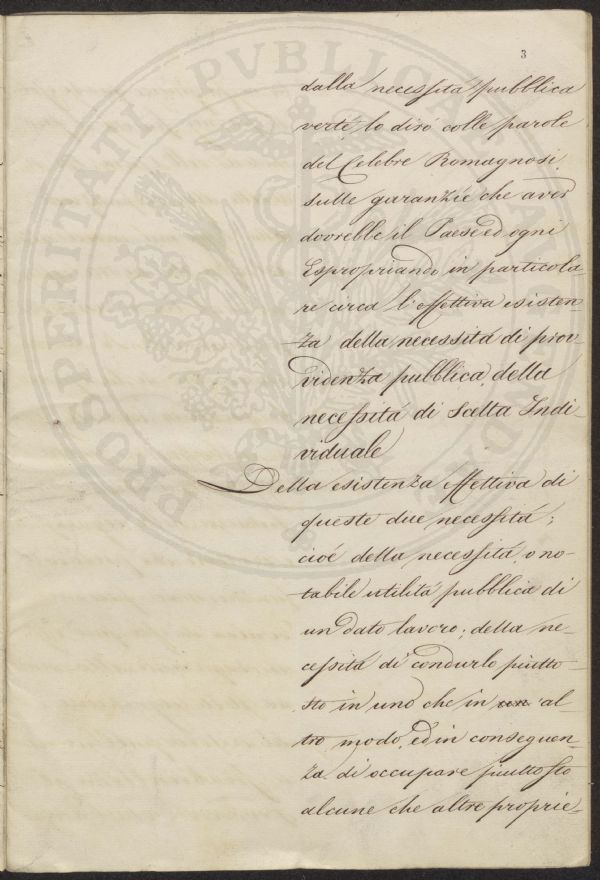 3
dalla necessitá pubblica
verte, lo diró colle parole
del Celebre Romagnosi
sulle garanzie che aver
dovrebbe il Paese ed ogni
Espropriando in particola-
re circa l'effettiva esisten-
za della necessitá di prov-
videnza pubblica, della
necessitá di Scelta Indi-
viduale
Della esistenza effettiva di
queste due necessitá;
cioé della necessitá, o no-
tabile utilitá pubblica di
un dato lavoro; della ne-
cessitá di condurlo piutto-
sto in uno che in un al-
tro modo, ed in conseguen-
za di occupare piuttosto
alcune che altre proprie-
PROSPERITATI PVBLICAE